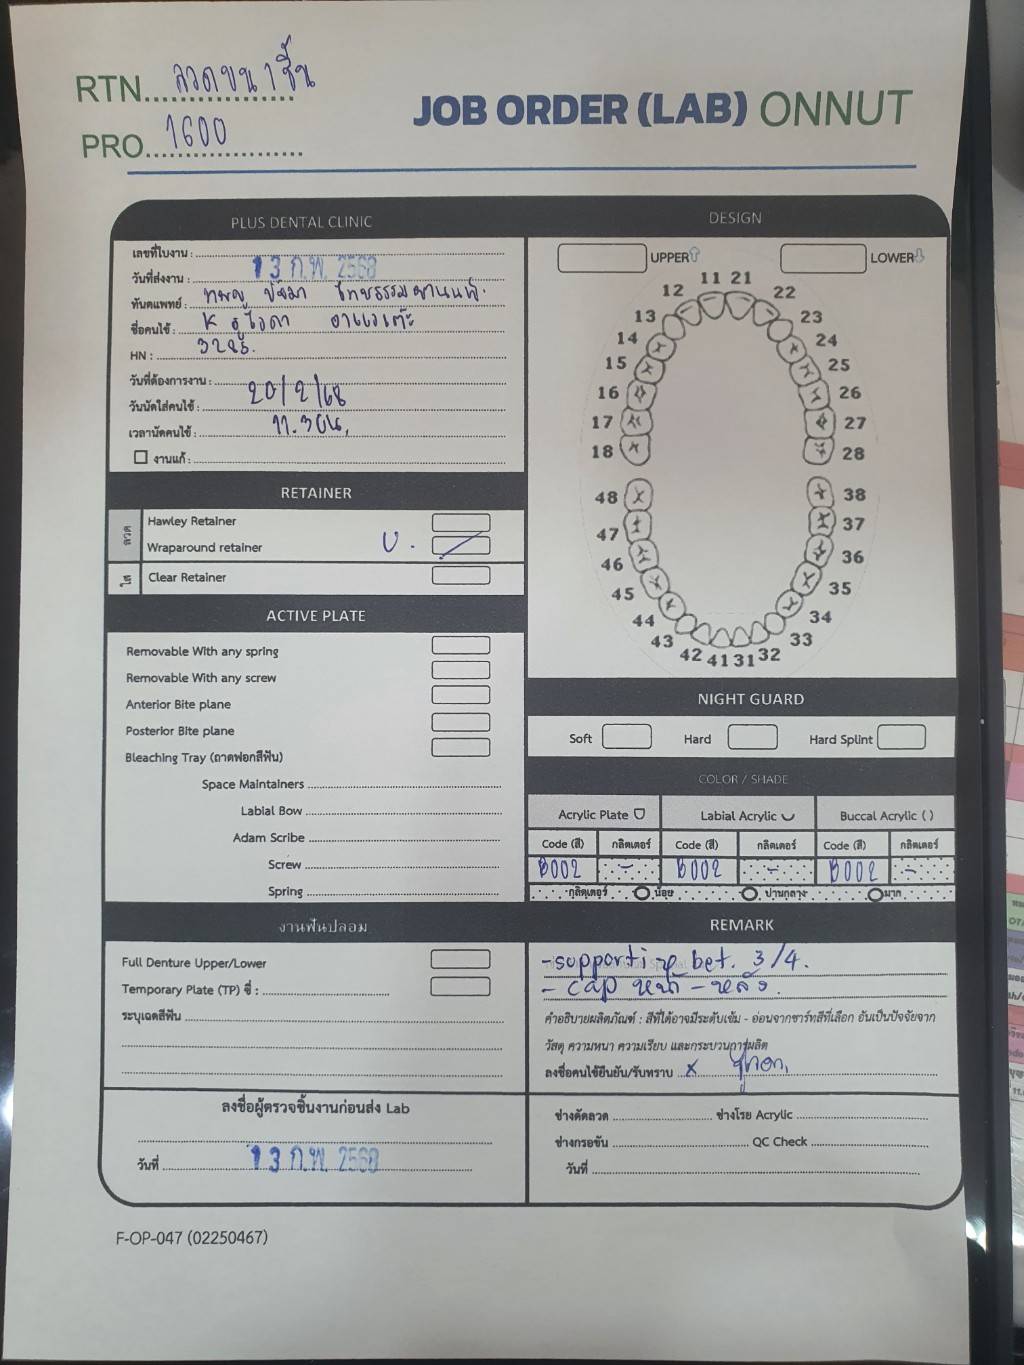 RTN.... ลวดบน 1 ชิ้น
PRO.... 1600
JOB ORDER (LAB) ONNUT
PLUS DENTAL CLINIC
เลขที่ใบงาน :
วันที่ส่งงาน : 13 ก.พ. 2568
ทันตแพทย์ : ทพญ
ชื่อคนไข้ : K
HN : 3285.
วันที่ต้องการงาน :
วันนัดใส่คนไข้ : 20/2/68
เวลานัดคนไข้ : 11.30น.
งานแก้ :
RETAINER
ลวด
Hawley Retainer
Wraparound retainer U.
ใส
Clear Retainer
ACTIVE PLATE
Removable With any spring
Removable With any screw
Anterior Bite plane
Posterior Bite plane
Bleaching Tray (ถาดฟอกสีฟัน)
Space Maintainers
Labial Bow
Adam Scribe
Screw
Spring
งานฟันปลอม
Full Denture Upper/Lower
Temporary Plate (TP) ซี่ :
ระบุเฉดสีฟัน
ลงชื่อผู้ตรวจชิ้นงานก่อนส่ง Lab
วันที่ 13 ก.พ. 2568
DESIGN
UPPER LOWER
11 21
12 22
13 23
14 24
15 25
16 26
17 27
18 28
48 38
47 37
46 36
45 35
44 34
43 33
42 41 31 32
NIGHT GUARD
Soft Hard Hard Splint
COLOR / SHADE
Acrylic Plate Labial Acrylic Buccal Acrylic ( )
Code (สี) กลิตเตอร์ Code (สี) กลิตเตอร์ Code (สี) กลิตเตอร์
B002 - B002 - B002 -
กลิตเตอร์ น้อย ปานกลาง มาก
REMARK
- supporting bet. 3/4.
- cap หน้า - หลัง.
คำอธิบายผลิตภัณฑ์ : สีที่ได้อาจมีระดับเข้ม - อ่อนจากชาร์ทสีที่เลือก อันเป็นปัจจัยจาก
วัสดุ ความหนา ความเรียบ และกระบวนการผลิต
ลงชื่อคนไข้ยืนยัน/รับทราบ x
ช่างดัดลวด ช่างโรย Acrylic
ช่างกรอขัน QC Check
วันที่
F-OP-047 (02250467)